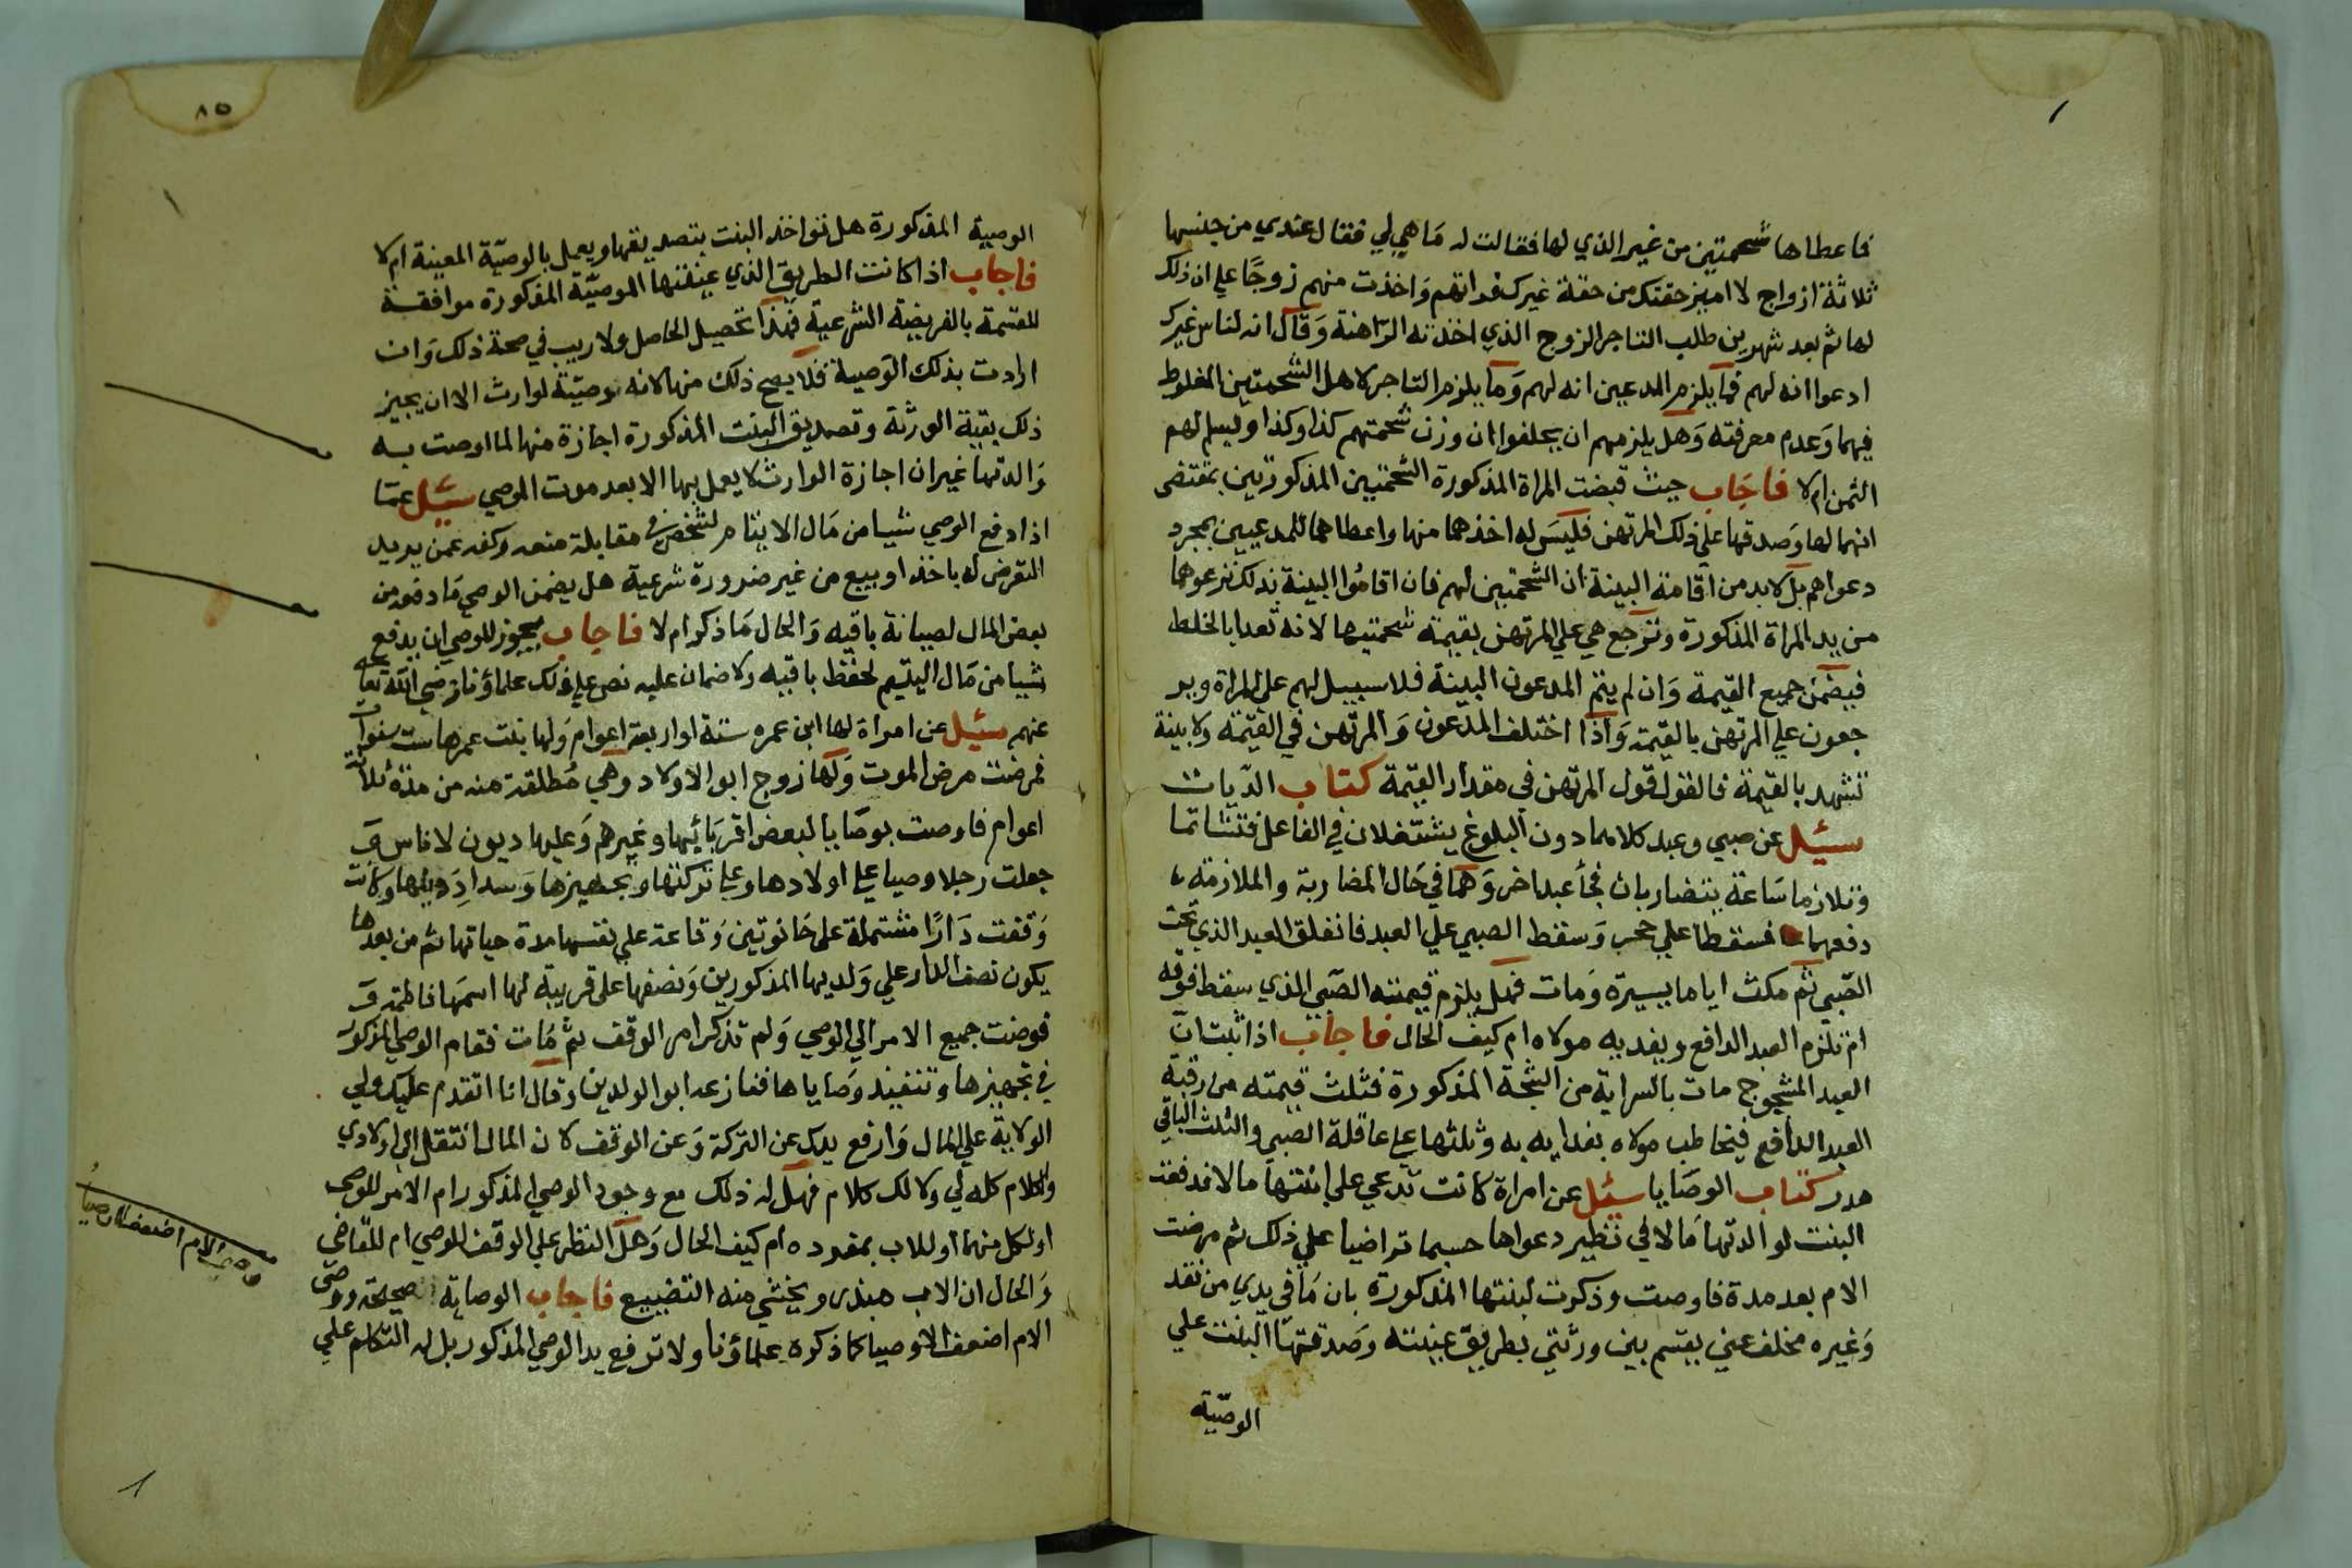 فاعطاها شحمتين من غير الذي لها فقالت له ما هي لي فقال عندي من جنسها
ثلاثة ازواج لا اميز حقتك من حقة غيرك فراتهم واخذت منهم زوجًا علي ان ذلك
لها ثم بعد شهرين طلب التاجر الزوج الذي اخذته الراهنة وقال انه لناس غيرك
ادعوا انه لهم فما يلزم المدعين انه لهم وما يلزم التاجر لاهل الشحمتين المغلوط
فيهما وعدم معرفته وهل يلزمهم ان يحلفوا ان وزن شحمتهم كذا وكذا او ليسلم لهم
الثمن ام لا فاجاب حيث قبضت المراة المذكورة الشحمتين المذكورتين بمقتضى
انهما لها وصدقها علي ذلك المرتهن فليس له اخذهما منها واعطاهما للمدعيين بمجرد
دعواهم بل لا بد من اقامة البينة ان الشحمتين لهم فان اقاموا البينة بذلك نزعوهما
من يد المراة المذكورة وترجع هي علي المرتهن بقيمة شحمتيها لانه تعدا بالخلط
فيضمن جميع القيمة وان لم يقم المدعون البينة فلا سبيل لهم على المراة وير
جعون علي المرتهن بالقيمة واذا اختلف المدعون والمرتهن في القيمة ولا بينة
تشهد بالقيمة فالقول قول المرتهن في مقدار القيمة كتاب الديات
سئيل عن صبي وعبد كلاهما دون البلوغ يشتغلان في الفاعل فتشاتما
وتلازما ساعة يتضاربان فجا عبد اخر وهما في حال المضاربة والملازمة
دفعهما فسقطا علي حجر وسقط الصبي علي العبد فانفلق العبد الذي تحت
الصبي ثم مكث اياما يسيرة ومات فهل يلزم قيمته الصبي الذي سقط فوقه
ام تلزم العبد الدافع ويفديه مولاه ام كيف الحال فاجاب اذا ثبت ان
العبد المشجوج مات بالسراية من الشجة المذكورة فثلث قيمته من رقبة
العبد الدافع فيخاطب مولاه بفدايه به وثلثها علي عاقلة الصبي والثلث الباقي
هدر كتاب الوصايا سئيل عن امراة كانت تدعي علي ابنتها مالا فدفعت
البنت لوالدتها مالا في نظير دعواها حسبما تراضيا علي ذلك ثم مرضت
الام بعد مدة فاوصت وذكرت لبنتها المذكورة بان ما في يدي من نقد
وغيره مخلف عني يقسم بين ورثتي بطريق عينته وصدقتها البنت علي
الوصية
٨٥
الوصية المذكورة هل تواخذ البنت بتصديقها ويعمل بالوصية المعينة ام لا
فاجاب اذا كانت الطريق الذي عينتها الموصية المذكورة موافقة
للقسمة بالفريضة الشرعية فهذا تحصيل الحاصل ولا ريب في صحة ذلك وان
ارادت بذلك الوصية فلا يصح ذلك منها لانه وصية لوارث الا ان يجيز
ذلك بقية الورثة وتصديق البنت المذكورة اجازة منها لما اوصت به
والدتها غير ان اجازة الوارث لا يعمل بها الا بعد موت الموصي سئيل عما
اذا دفع الوصي شيا من مال الايتام لشخص في مقابلة منعه وكفه عمن يريد
التعرض له باخذ او بيع من غير ضرورة شرعية هل يضمن الوصي ما دفعه من
بعض المال لصيانة باقيه والحال ما ذكر ام لا فاجاب يجوز للوصي ان يدفع
شيا من مال اليتيم لحفظ باقيه ولا ضمان عليه نص علي ذلك علماؤنا رضي الله تعالى
عنهم سئيل عن امراة لها ابن عمره ستة او اربعة اعوام ولها بنت عمرها ست سنوات
فمرضت مرض الموت ولها زوج ابو الاولاد وهي مطلقة منه من مدة ثلاثة
اعوام فاوصت بوصايا لبعض اقربائها وغيرهم وعليها ديون لاناس و
جعلت رجلا وصيا علي اولادها وعلي تركتها وتجهيزها وسداد دينها وكانت
وقفت دارًا مشتملة على حانوتين وقاعة علي نفسها مدة حياتها ثم من بعدها
يكون نصف الدار علي ولديها المذكورين ونصفها على قريبة لها اسمها فاطمة و
فوضت جميع الامر الي الوصي ولم تذكر امر الوقف ثم ماتت فقام الوصي المذكور
في تجهيزها وتنفيذ وصاياها فنازعه ابو الولدين وقال انا اتقدم عليك ولي
الولاية علي المال وارفع يدك عن التركة وعن الوقف لان المال انتقل الي اولادي
والكلام كله لي ولا لك كلام فهل له ذلك مع وجود الوصي المذكور ام الامر للوصي
او لكل منهما او للاب بمفرده ام كيف الحال وهل النظر علي الوقف للوصي ام للقاضي
والحال ان الاب مبذر ويخشي منه التضييع فاجاب الوصاية صحيحة ووصي
الام اضعف الاوصيا كما ذكره علماؤنا ولا ترفع يد الوصي المذكور بل له التكلم علي
وصي الام اضعف الاوصيا